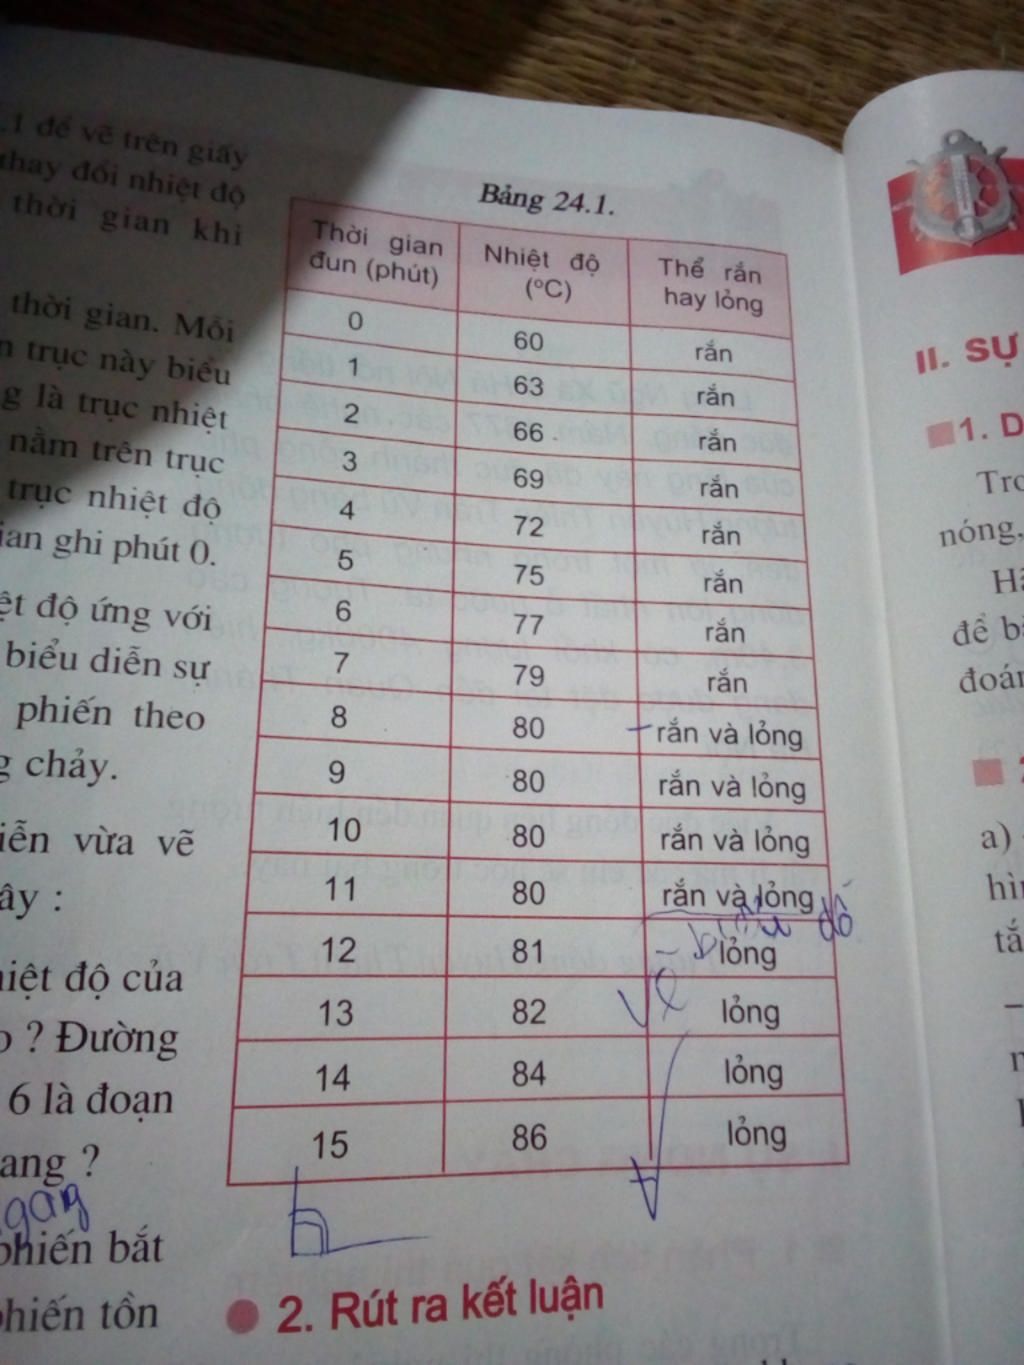 .1 để vẽ trên giấy
thay đổi nhiệt độ
thời gian khi
thời gian. Mỗi
trục này biểu
g là trục nhiệt
nằm trên trục
trục nhiệt độ
ian ghi phút 0.
ệt độ ứng với
biểu diễn sự
phiến theo
g chảy.
iễn vừa vẽ
ây :
iệt độ của
o ? Đường
6 là đoạn
ang ?
gang
phiến bắt
phiến tồn
Bảng 24.1.
Thời gian đun (phút) Nhiệt độ (°C) Thể rắn hay lỏng
0 60 rắn
1 63 rắn
2 66 rắn
3 69 rắn
4 72 rắn
5 75 rắn
6 77 rắn
7 79 rắn
8 80 rắn và lỏng
9 80 rắn và lỏng
10 80 rắn và lỏng
11 80 rắn và lỏng
12 81 lỏng
13 82 lỏng
14 84 lỏng
15 86 lỏng
vẽ
2. Rút ra kết luận
II. SỰ
1. D
Tro
nóng,
Hã
để b
đoán
a)
hìn
tắ